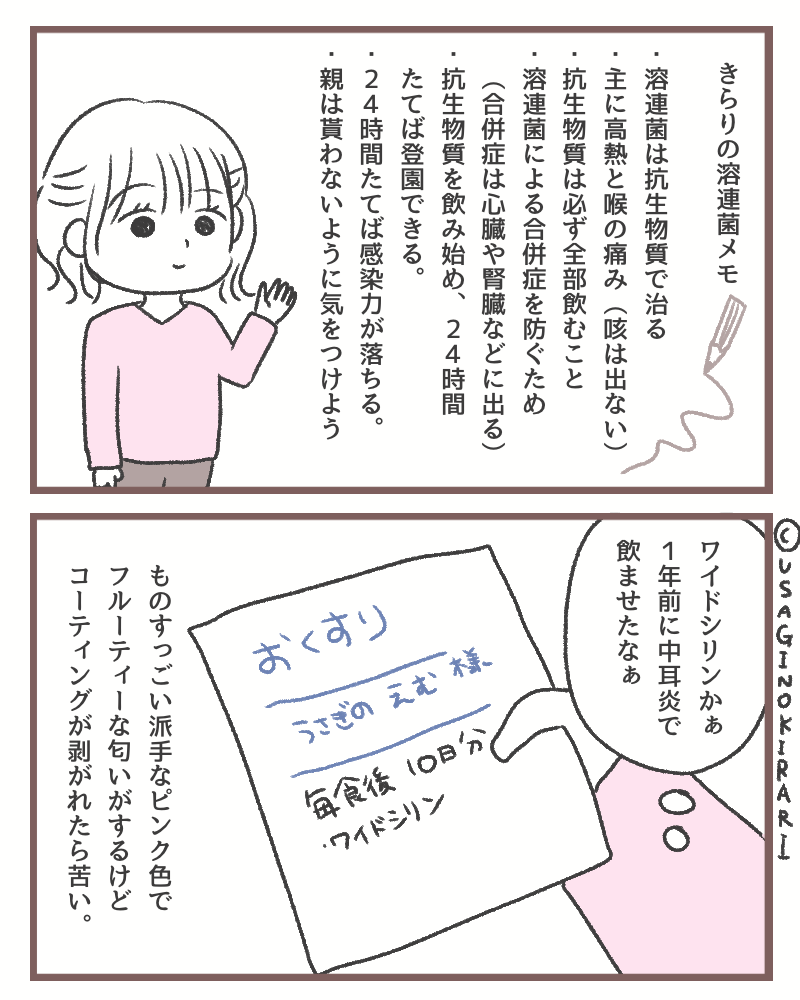 きらりの溶連菌メモ
・溶連菌は抗生物質で治る
・主に高熱と喉の痛み（咳は出ない）
・抗生物質は必ず全部飲むこと
・溶連菌による合併症を防ぐため
（合併症は心臓や腎臓などに出る）
・抗生物質を飲み始め、24時間
たてば登園できる。
・24時間たてば感染力が落ちる。
・親は貰わないように気をつけよう
ワイドシリンかぁ
1年前に中耳炎で
飲ませたなぁ
おくすり
うさぎの えむ 様
毎食後 10日分
・ワイドシリン
ものすっごい派手なピンク色で
フルーティーな匂いがするけど
コーティングが剥がれたら苦い。
©USAGINOKIRARI